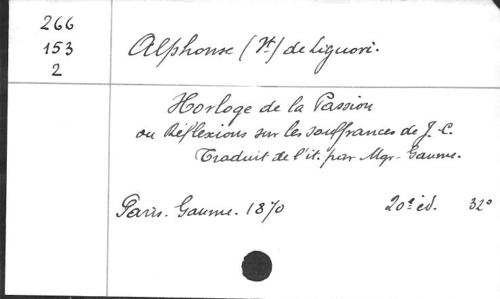 266
153
2
Alphonse (St) de Liguori.
Horloge de la Passion
ou Réflexions sur les souffrances de J.-C.
Traduit de l'it. par Mgr. Gaume.
Paris. Gaume. 1870 20e éd. 32°